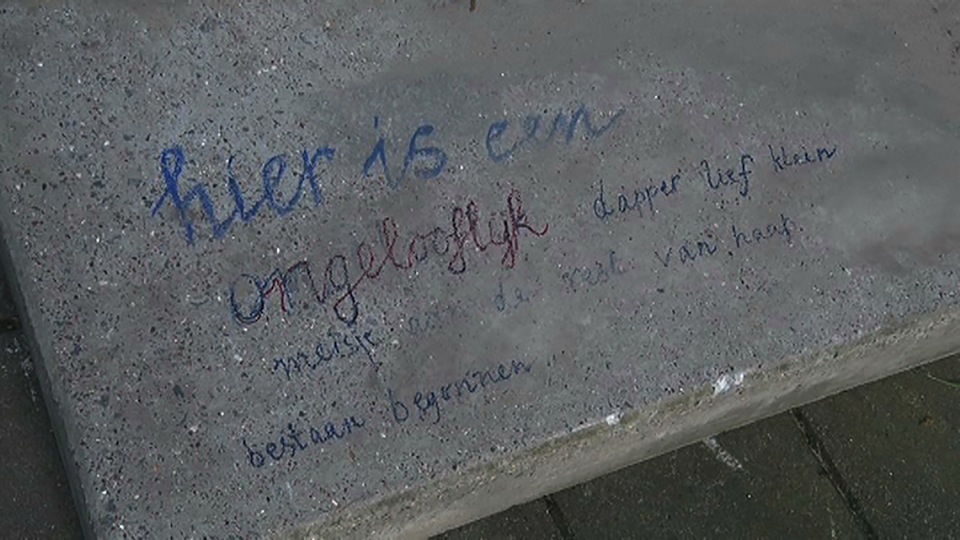 hier is een
ongelooflijk dapper lief klein
meisje aan de rest van haar
bestaan begonnen